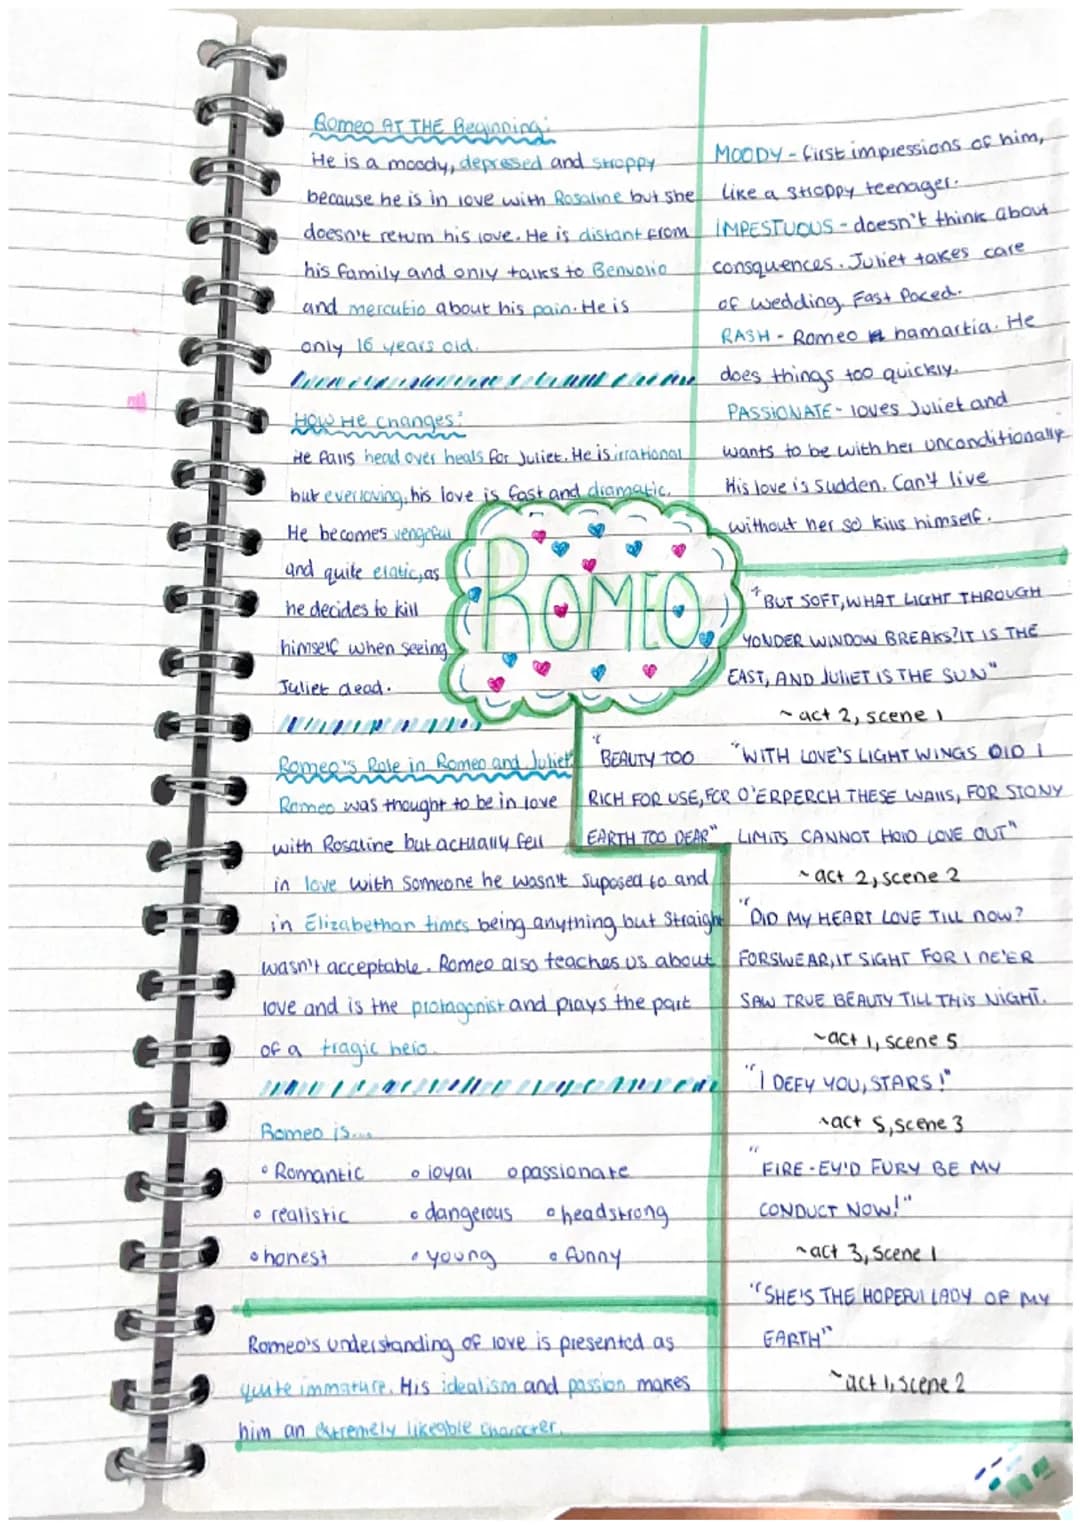 Romeo AT THE Beginning:
He is a moody, depressed and stroppy
because he is in love with Rosaline but she
doesn't return his love. He is distant from
his family and only talks to Benvolio
and mercutio about his pain. He is
only 16 years old.
HOW He changes:
He falls head over heals for Juliet. He is irrational
but everloving, his love is fast and dramatic.
He becomes vengeful
and quite elatic, as
he decides to kill
himself when seeing
Juliet dead.
Romeo's Role in Romeo and Juliet
Romeo was thought to be in love
with Rosaline but actually fell
in love with someone he wasn't suposed to and
in Elizabethan times being anything but straight
wasn't acceptable. Romeo also teaches us about
love and is the protagonist and plays the part
of a tragic hero.
Romeo is....
• Romantic • loyal • passionate
• realistic • dangerous • headstrong
• honest • young • funny
Romeo's understanding of love is presented as
quite immature. His idealism and passion makes
him an extremely likeable character.
ROMEO
MOODY - first impressions of him,
like a stroppy teenager.
IMPESTUOUS - doesn't think about
consquences. Juliet takes care
of wedding. Fast Paced.
RASH - Romeo hamartia. He
does things too quickly.
PASSIONATE - loves Juliet and
wants to be with her unconditionally
His love is sudden. Can't live
without her so kills himself.
"BUT SOFT, WHAT LIGHT THROUGH
YONDER WINDOW BREAKS? IT IS THE
EAST, AND JULIET IS THE SUN"
~ act 2, scene 1
"BEAUTY TOO
RICH FOR USE, FOR
EARTH TOO DEAR"
"WITH LOVE'S LIGHT WINGS DID I
O'ERPERCH THESE WALLS, FOR STONY
LIMITS CANNOT HOLD LOVE OUT"
~ act 2, scene 2
"DID MY HEART LOVE TILL NOW?
FORSWEAR, IT SIGHT FOR I NE'ER
SAW TRUE BEAUTY TILL THIS NIGHT.
~ act 1, scene 5
"I DEFY YOU, STARS!"
~ act 5, scene 3
"FIRE-EY'D FURY BE MY
CONDUCT NOW!"
~ act 3, scene 1
"SHE'S THE HOPEFUL LADY OF MY
EARTH"
~ act 1, scene 2